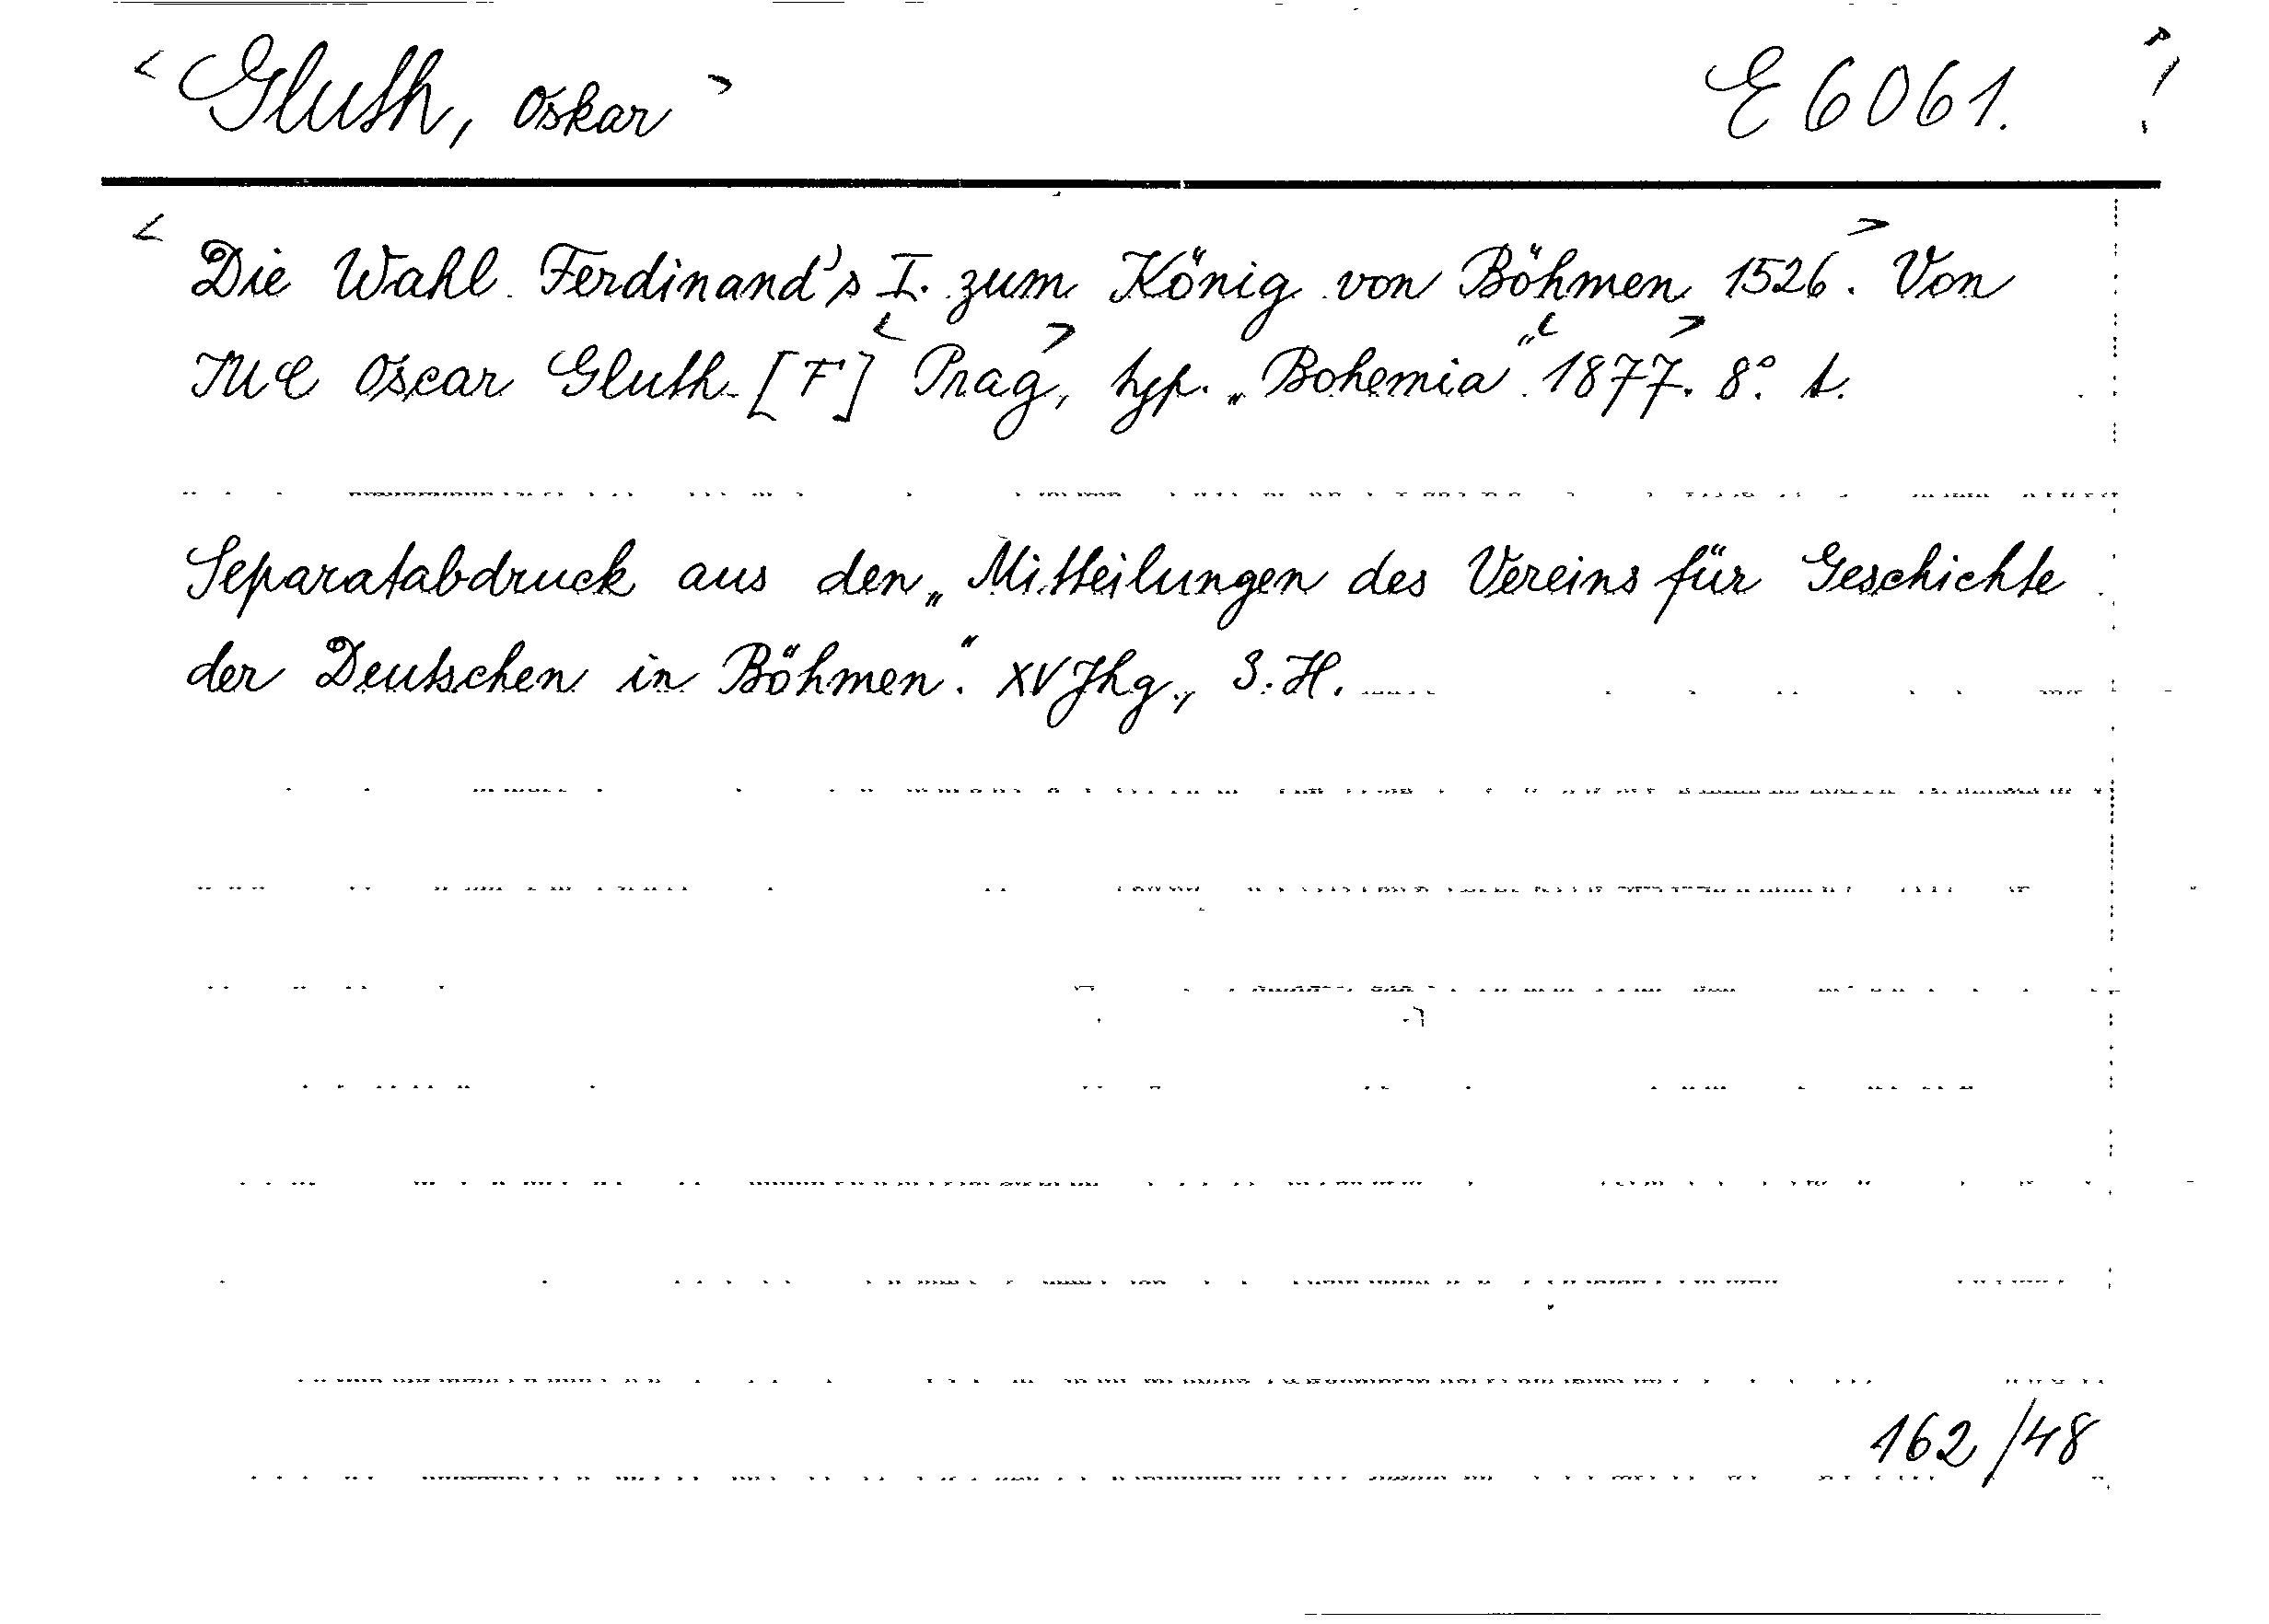 < Gluth, Oskar > E 6061.
< Die Wahl Ferdinand's I. zum König von Böhmen 1526 >. Von
JUC Oscar Gluth. [F] < Prag >, typ. „Bohemia“ < 1877 >. 8°. t.
Separatabdruck aus den „Mitteilungen des Vereins für Geschichte
der Deutschen in Böhmen“. XV Jhg., 3. H.
162/48